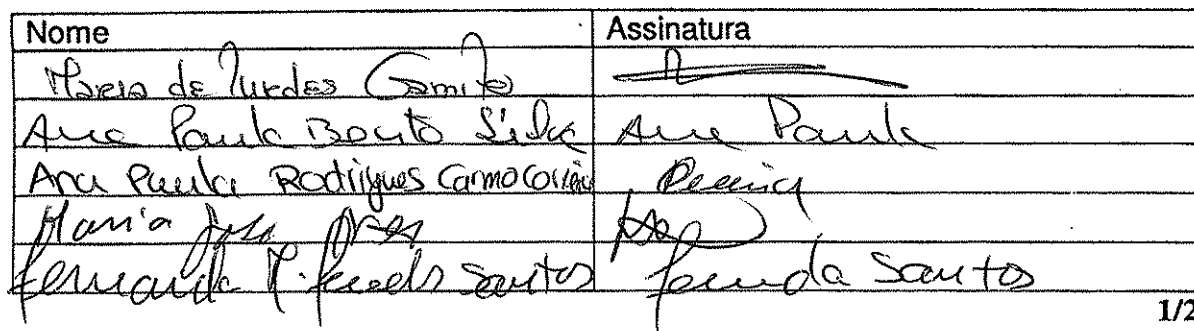 Nome Assinatura
Maria de Lurdes Camilo
Ana Paula Bento Silva Ana Paula
Ana Paula Rodrigues Carmo Correia
Maria José
Fernanda M. Santos Fernanda Santos
1/2